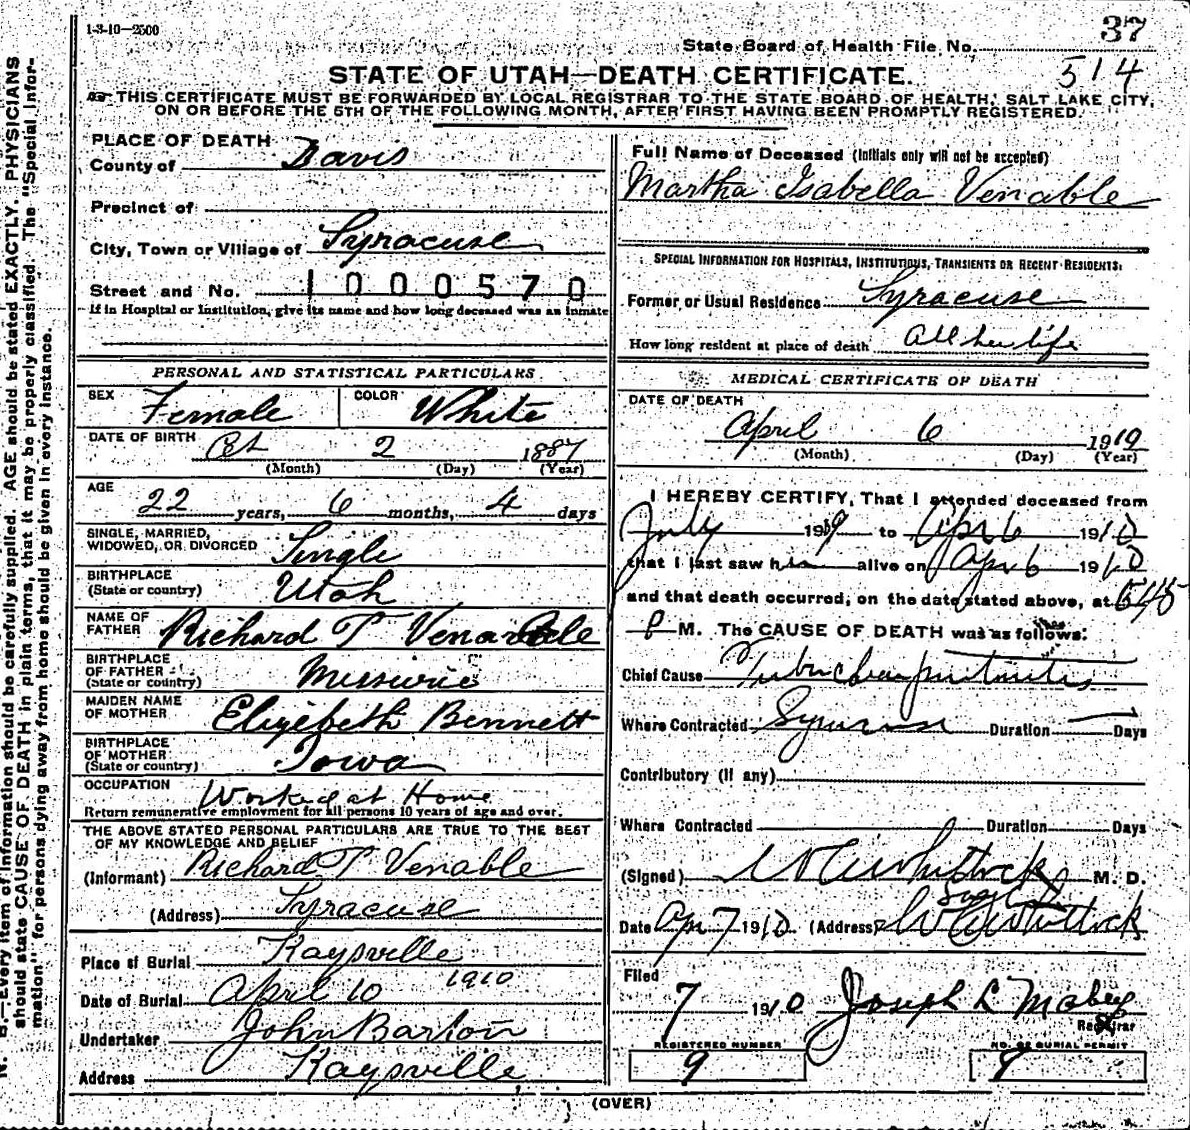 1-3-10-2500
37
State Board of Health File No.
514
STATE OF UTAH—DEATH CERTIFICATE.
THIS CERTIFICATE MUST BE FORWARDED BY LOCAL REGISTRAR TO THE STATE BOARD OF HEALTH, SALT LAKE CITY,
ON OR BEFORE THE 5TH OF THE FOLLOWING MONTH, AFTER FIRST HAVING BEEN PROMPTLY REGISTERED.
N. B.—Every item of information should be carefully supplied. AGE should be stated EXACTLY. PHYSICIANS
should state CAUSE OF DEATH in plain terms, that it may be properly classified. The "Special Infor-
mation" for persons dying away from home should be given in every instance.
PLACE OF DEATH
County of Davis
Precinct of
City, Town or Village of Syracuse
Street and No. 1000570
If in Hospital or Institution, give its name and how long deceased was an inmate
PERSONAL AND STATISTICAL PARTICULARS
SEX Female COLOR White
DATE OF BIRTH Oct 2 1887
(Month) (Day) (Year)
AGE
22 years, 6 months, 4 days
SINGLE, MARRIED,
WIDOWED, OR DIVORCED Single
BIRTHPLACE
(State or country) Utah
NAME OF
FATHER Richard T Venable
BIRTHPLACE
OF FATHER
(State or country) Missiurie
MAIDEN NAME
OF MOTHER Elizebeth Bennett
BIRTHPLACE
OF MOTHER
(State or country) Iowa
OCCUPATION Worked at Home
Return remunerative employment for all persons 10 years of age and over.
THE ABOVE STATED PERSONAL PARTICULARS ARE TRUE TO THE BEST
OF MY KNOWLEDGE AND BELIEF
(Informant) Richard T Venable
(Address) Syracuse
Place of Burial Kaysville
Date of Burial April 10 1910
Undertaker John Barton
Address Kaysville
Full Name of Deceased (Initials only will not be accepted)
Martha Isabella Venable
SPECIAL INFORMATION FOR HOSPITALS, INSTITUTIONS, TRANSIENTS OR RECENT RESIDENTS:
Former or Usual Residence Syracuse
How long resident at place of death All her life
MEDICAL CERTIFICATE OF DEATH
DATE OF DEATH
April 6 1910
(Month) (Day) (Year)
I HEREBY CERTIFY, That I attended deceased from
July 1909 to Apr 6 1910
that I last saw h alive on Apr 6 1910
and that death occurred, on the date stated above, at 545
P M. The CAUSE OF DEATH was as follows:
Chief Cause Tubercular peritonitis
Where Contracted Syracuse Duration Days
Contributory (if any)
Where Contracted Duration Days
(Signed) Whitlock M. D.
Date Apr 7 1910 (Address) Whitlock
Filed
7 1910 Joseph L Mabey
Registrar
REGISTERED NUMBER
9
NO. OF BURIAL PERMIT
9
(OVER)